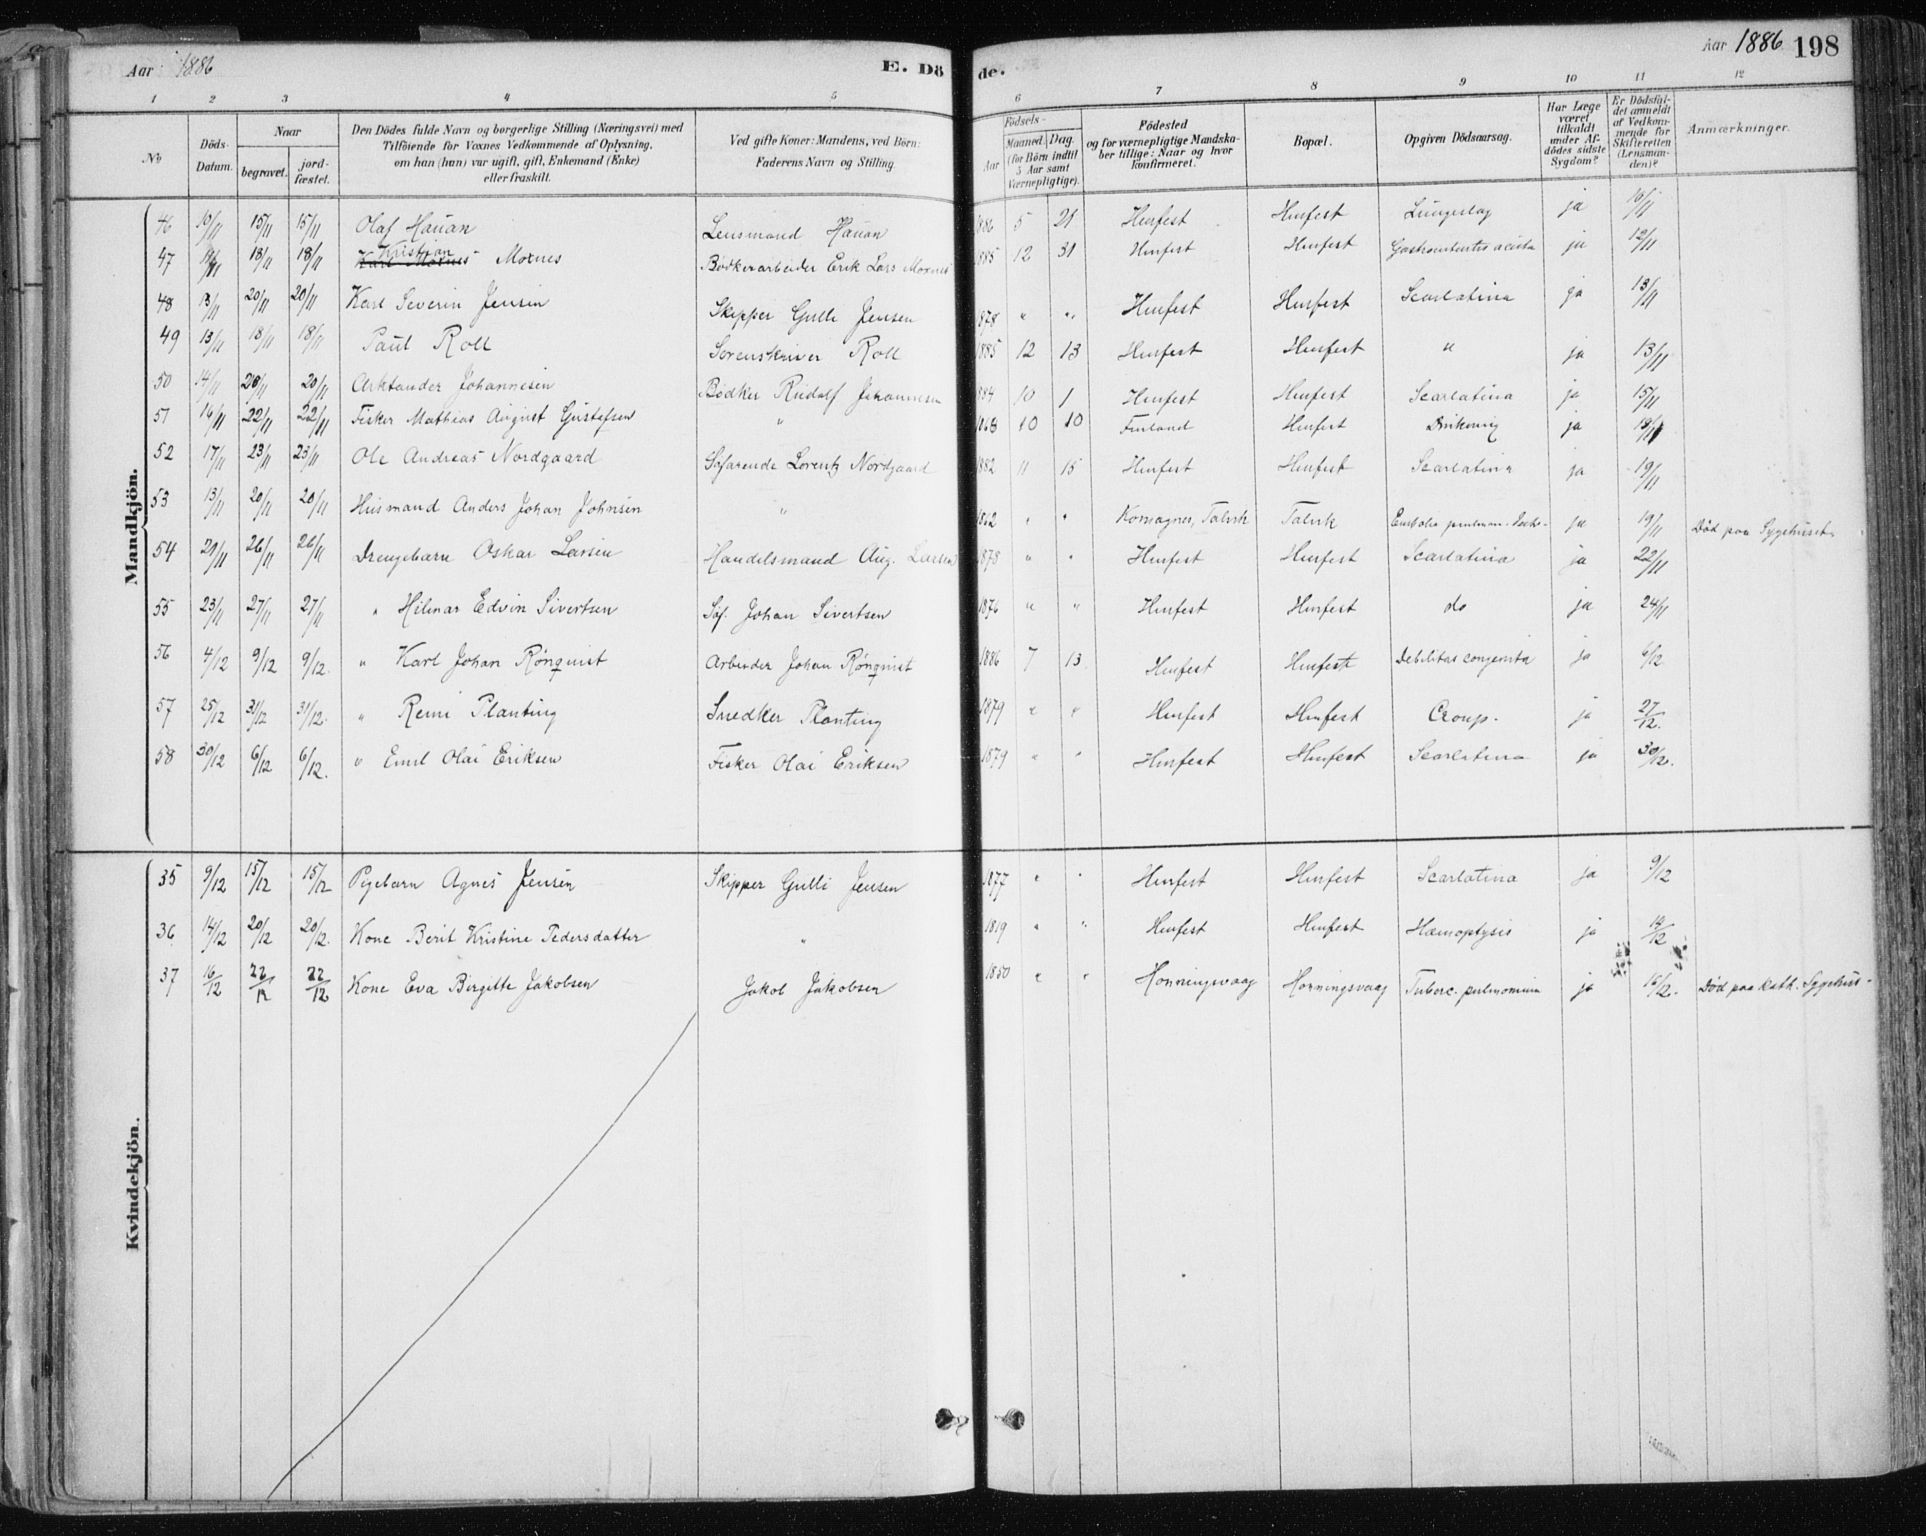 Aar 1886 E. Dö de. Aar 1886 198
1 2 3 4 5 6 7 8 9 10 11 12
No
Döds-Datum.
Naar
begravet.
jord-fæstet.
Den Dödes fulde Navn og borgerlige Stilling (Næringsvei) med
Tilföiende for Voxnes Vedkommende af Oplysning,
om han (hun) var ugift, gift, Enkemand (Enke)
eller fraskilt.
Ved gifte Koner: Mandens, ved Börn:
Faderens Navn og Stilling
Födsels-
Aar
Maaned. Dag.
(for Börn indtil
5 Aar samt
Værnepligtige).
Födested
og for værnepligtige Mandska-
ber tillige: Naar og hvor
konfirmeret.
Bopæl.
Opgiven Dödsaarsag.
Har Læge
været
tilkaldt
under Af-
dödes sidste
Sygdom?
Er Dödsfal-
det anmeldt
af Vedkom-
mende for
Skifteretten
(Lensman-
den)?
Anmærkninger.
Mandkjön.
46 10/11 15/11 15/11 Olaf Hauan Lensmand Hauan 1886 5 21 Hmfest Hmfest Lungeslag ja 16/11
47 18/11 18/11 Kristian Moxnes Bödkerarbeider Erik Lars Moxnes 1885 12 31 Hmfest Hmfest acuta ja 12/11
48 13/11 20/11 20/11 Karl Severin Jensen Skipper Gulli Jensen 1878 " " Hmfest Hmfest Scarlatina ja 13/11
49 13/11 18/11 18/11 Paul Roll Sorenskriver Roll 1885 12 13 Hmfest Hmfest " ja 13/11
50 14/11 20/11 20/11 Arktander Johannesen Bödker Rudolf Johannesen 1884 10 1 Hmfest Hmfest Scarlatina ja 15/11
51 16/11 22/11 22/11 Fisker Mathias August Gustafsen " 10 10 Finland Hmfest Drukning ja 18/11
52 17/11 23/11 23/11 Ole Andreas Nordgaard Söfarende Lorentz Nordgaard 1882 11 15 Hmfest Hmfest Scarlatina ja 19/11
53 13/11 20/11 20/11 Husmand Anders Johan Johnsen " " " Komagnes, Talvik Talvik ja 19/11 Död paa Sygehuset
54 21/11 26/11 26/11 Drengebarn Oskar Larsen Handelsmand Aug. Larsen 1878 " " Hmfest Hmfest Scarlatina ja 22/11
55 23/11 27/11 27/11 " Hilmar Edvin Sivertsen Söf. Johan Sivertsen 1876 " " Hmfest Hmfest do ja 24/11
56 4/12 9/12 9/12. " Karl Johan Rönquist Arbeider Johan Rönquist 1886 7 13 Hmfest Hmfest Debilitas congenita ja 6/12
57 25/12 31/12 31/12. " Reini Planting Snedker Planting 1879 " " Hmfest Hmfest Croup. ja 27/12.
58 30/12 6/12 6/12. " Emil Olai Eriksen Fisker Olai Eriksen 1879 " " Hmfest Hmfest Scarlatina ja 30/12.
Kvindekjön.
35 9/12 15/12 15/12 Pigebarn Agnes Jensen Skipper Gulli Jensen 1877 " " Hmfest Hmfest Scarlatina ja 9/12
36 14/12 20/12 20/12. Kone Berit Kristine Pedersdatter " 1819 " " Hmfest Hmfest Hæmoptysis ja 14/12
37 16/12 22/12 22/12 Kone Eva Birgitte Jakobsen Jakob Jakobsen 1850 " " Honningsvaag Honningsvaag Tuberc. pulmonum ja 16/12. Död paa kath. Sygehus-